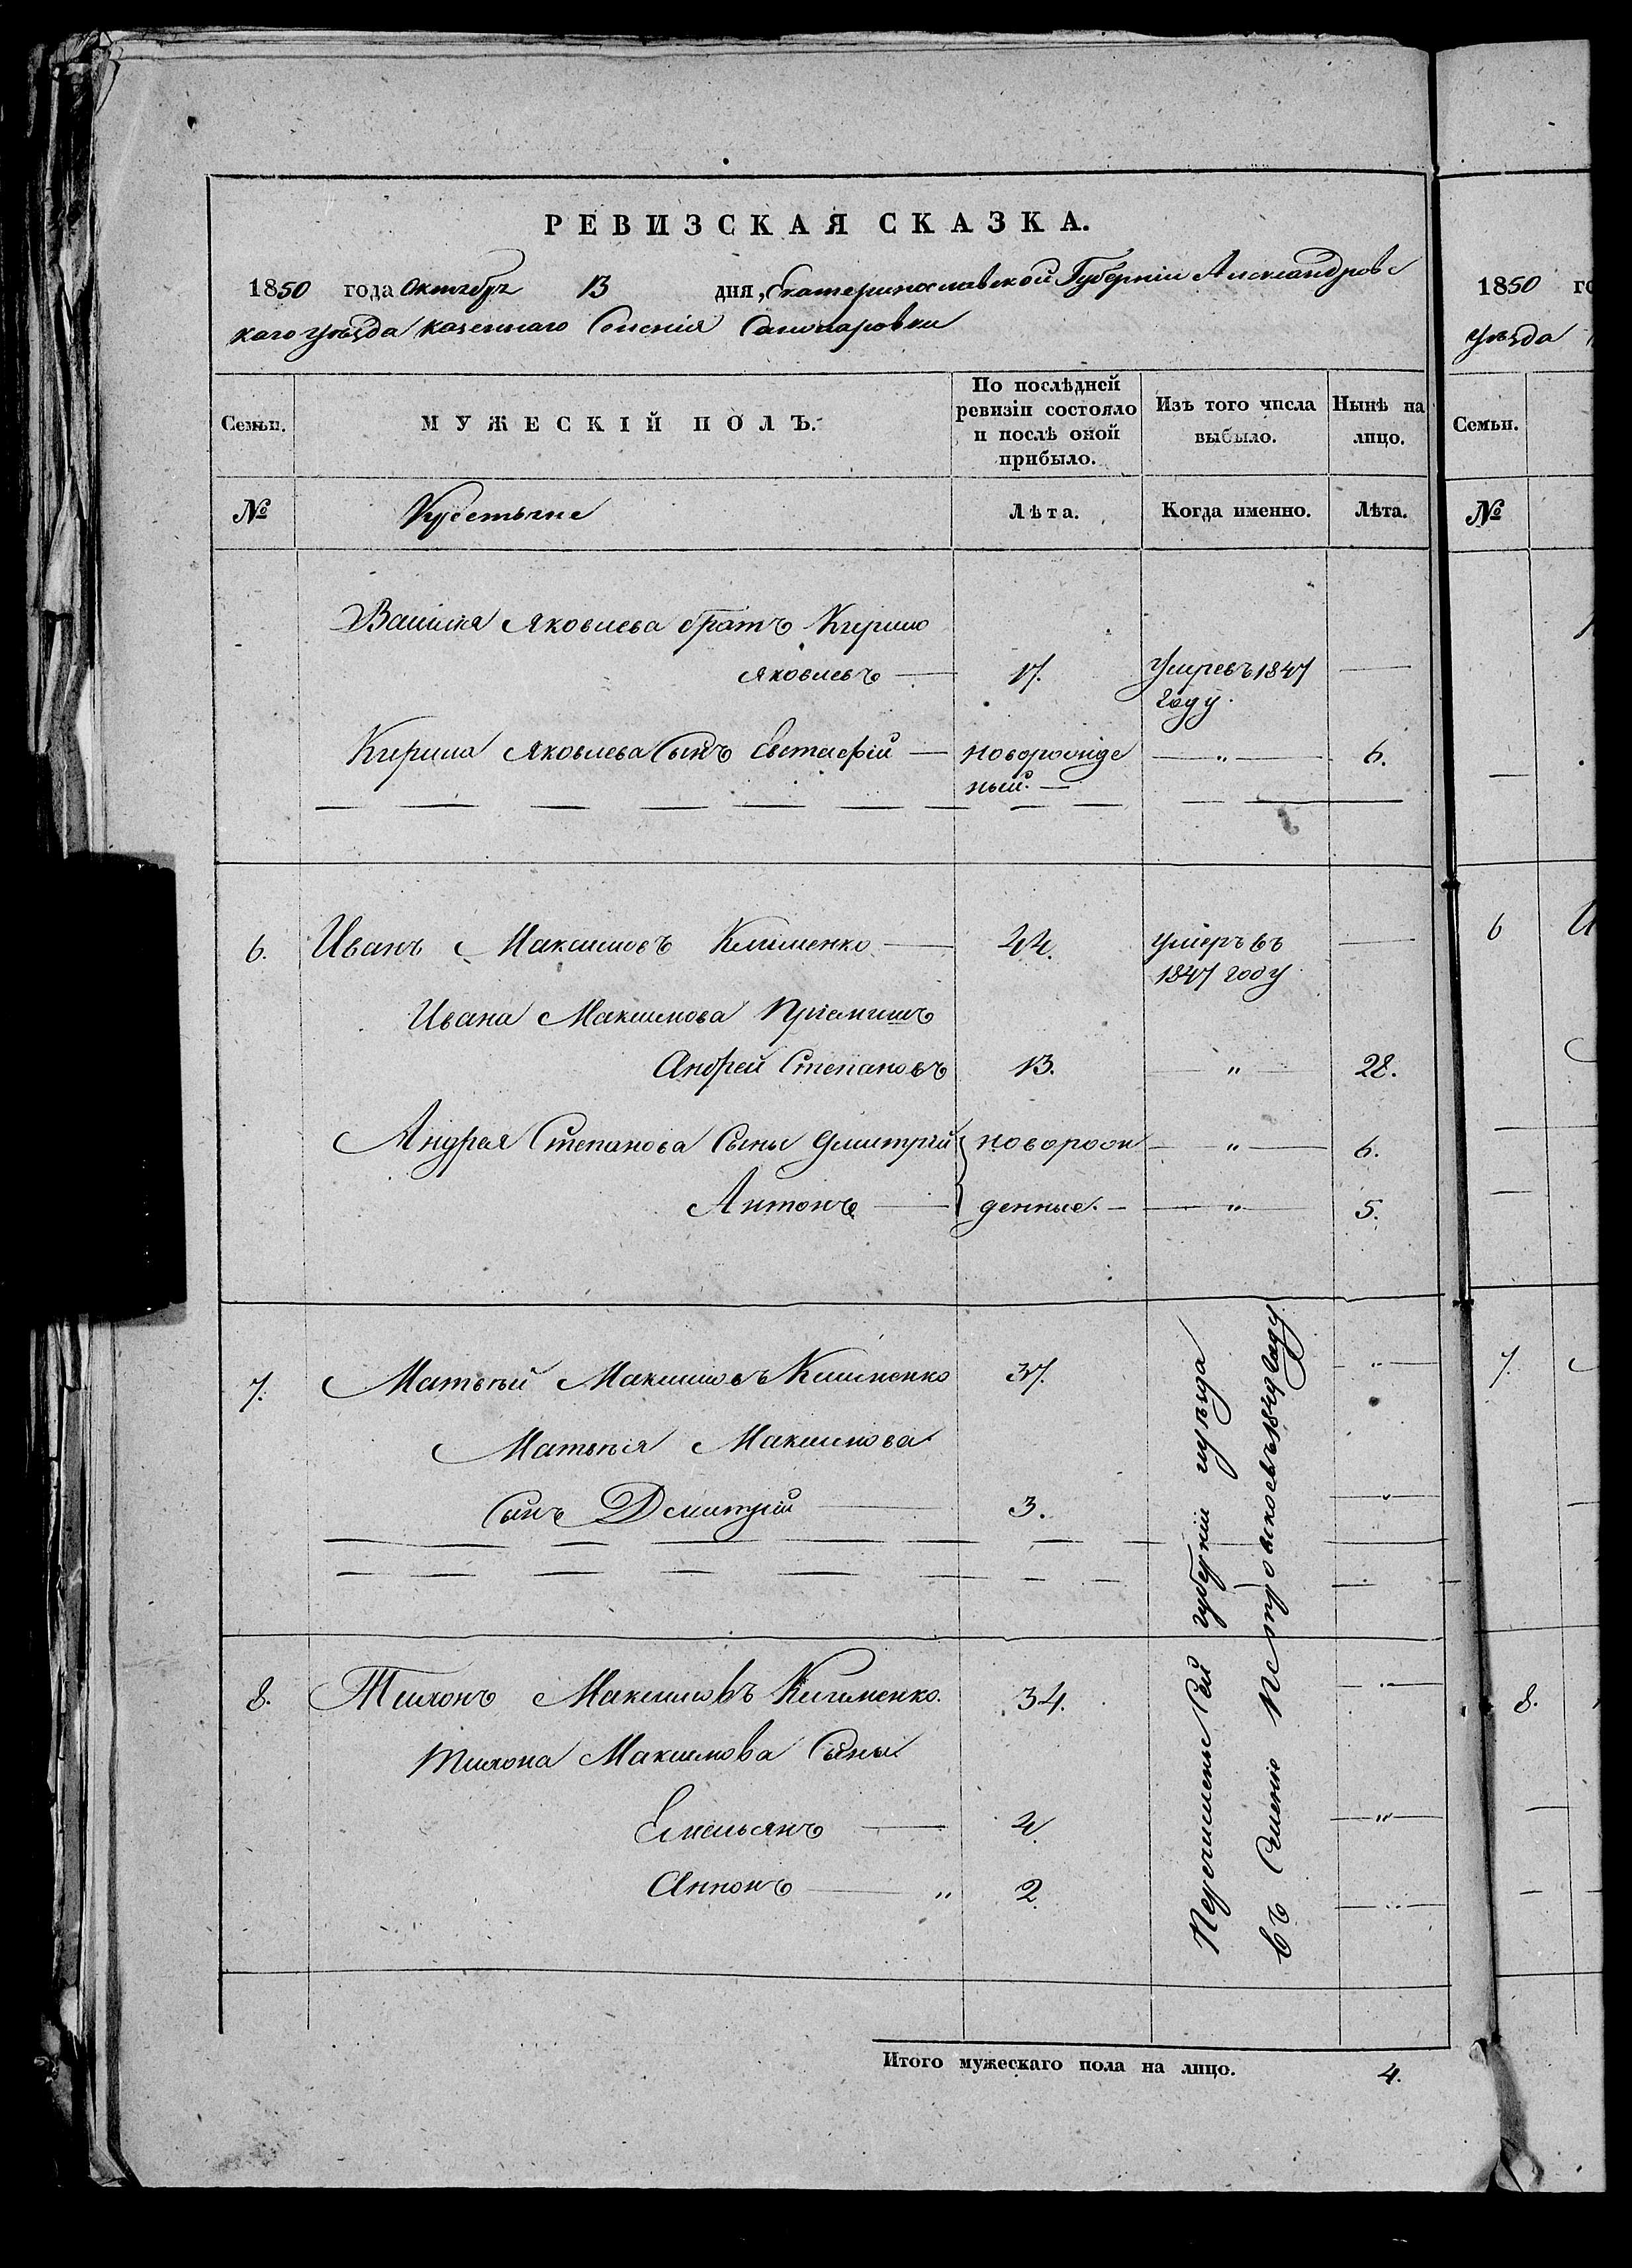 РЕВИЗСКАЯ СКАЗКА.
1850 года Октября 13 дня, Екатеринославской Губерніи Александровс
каго уѣзда казеннаго Селенія
Семьи.
МУЖЕСКІЙ ПОЛЪ.
По послѣдней ревизіи состояло и послѣ оной прибыло.
Изъ того числа выбыло.
Нынѣ на лицо.
№ Крестьяне Лѣта. Когда именно. Лѣта.
Василія Яковлева братъ Кирило
Яковлевъ — 17. Умеръ въ 1847 —
году.
Кирила Яковлева Сынъ Евстафій — новорожде — „ — 6.
ный. —
6. Иванъ Максимовъ Клименко — 44. умеръ въ —
1847 году.
Ивана Максимова Пріемышъ
Андрей Степановъ 13. — „ — 28.
Андрея Степанова Сыны Дмитрій новорож — „ — 6.
Антонъ — денные. — — „ — 5.
7. Матвѣй Максимовъ Клименко 37. — „ —
Матвѣя Максимова
Сынъ Дмитрій — 3. — „ —
8. Тихонъ Максимовъ Клименко. 34. — „ —
Тихона Максимова Сыны
Емельянъ — 4. — „ —
— „ 2. — „ —
Перечислены сей губерніи и уѣзда
въ Селеніе въ 1849 году
Итого мужескаго пола на лицо. 4.
1850 го
уѣзда
Семьи.
№
6
7.
8.